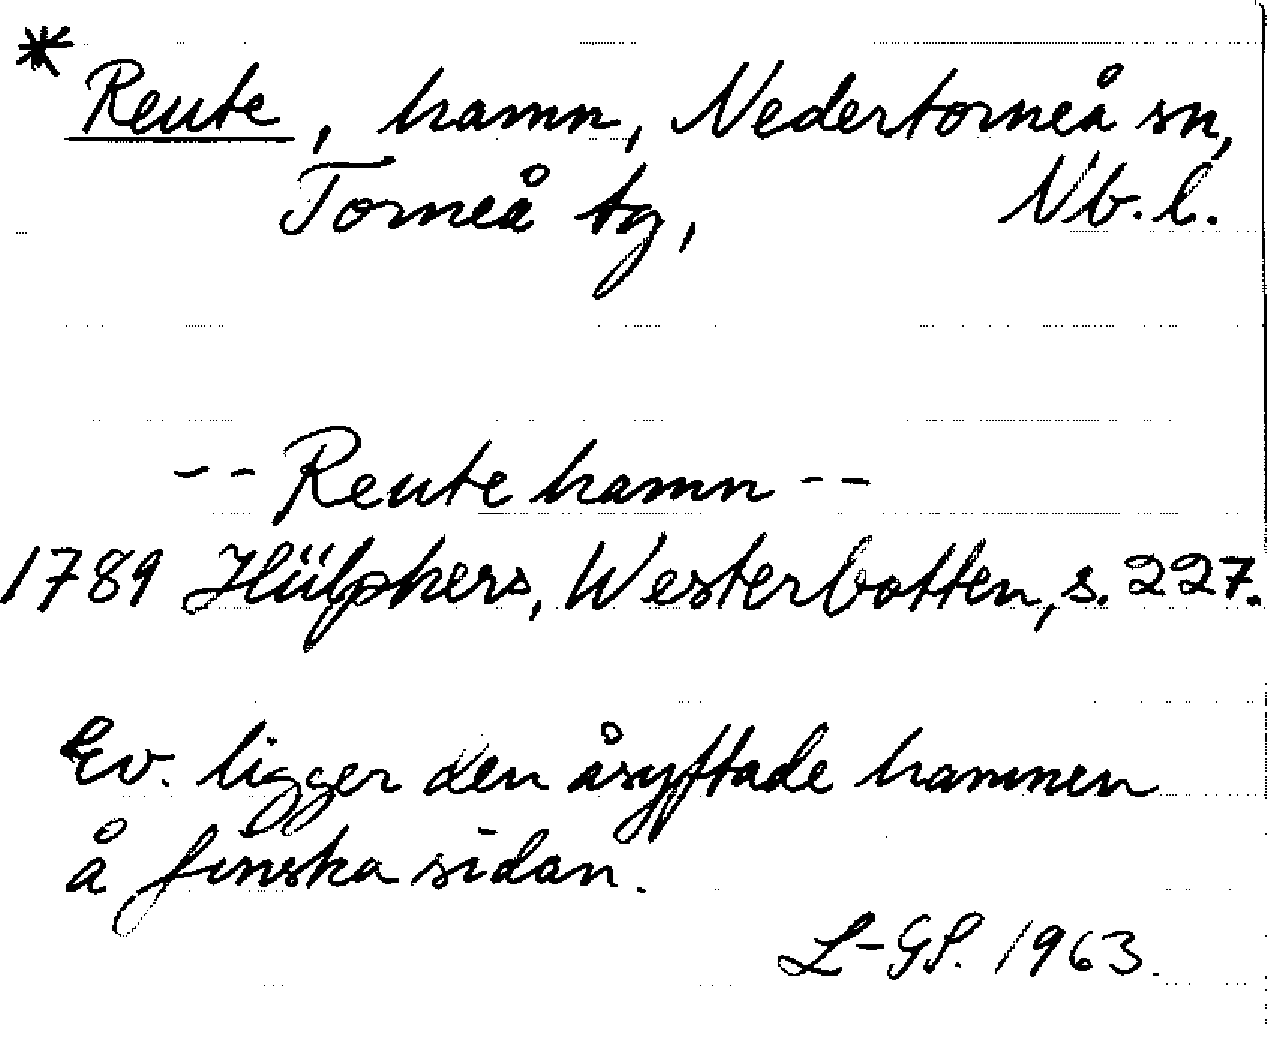 * Reute, hamn, Nedertorneå sn,
Torneå tg, Nb. l.
-- Reute hamn --
1789 Hülphers, Westerbotten, s. 227.
Ev. ligger den åsyftade hamnen
å finska sidan.
L-GP. 1963.